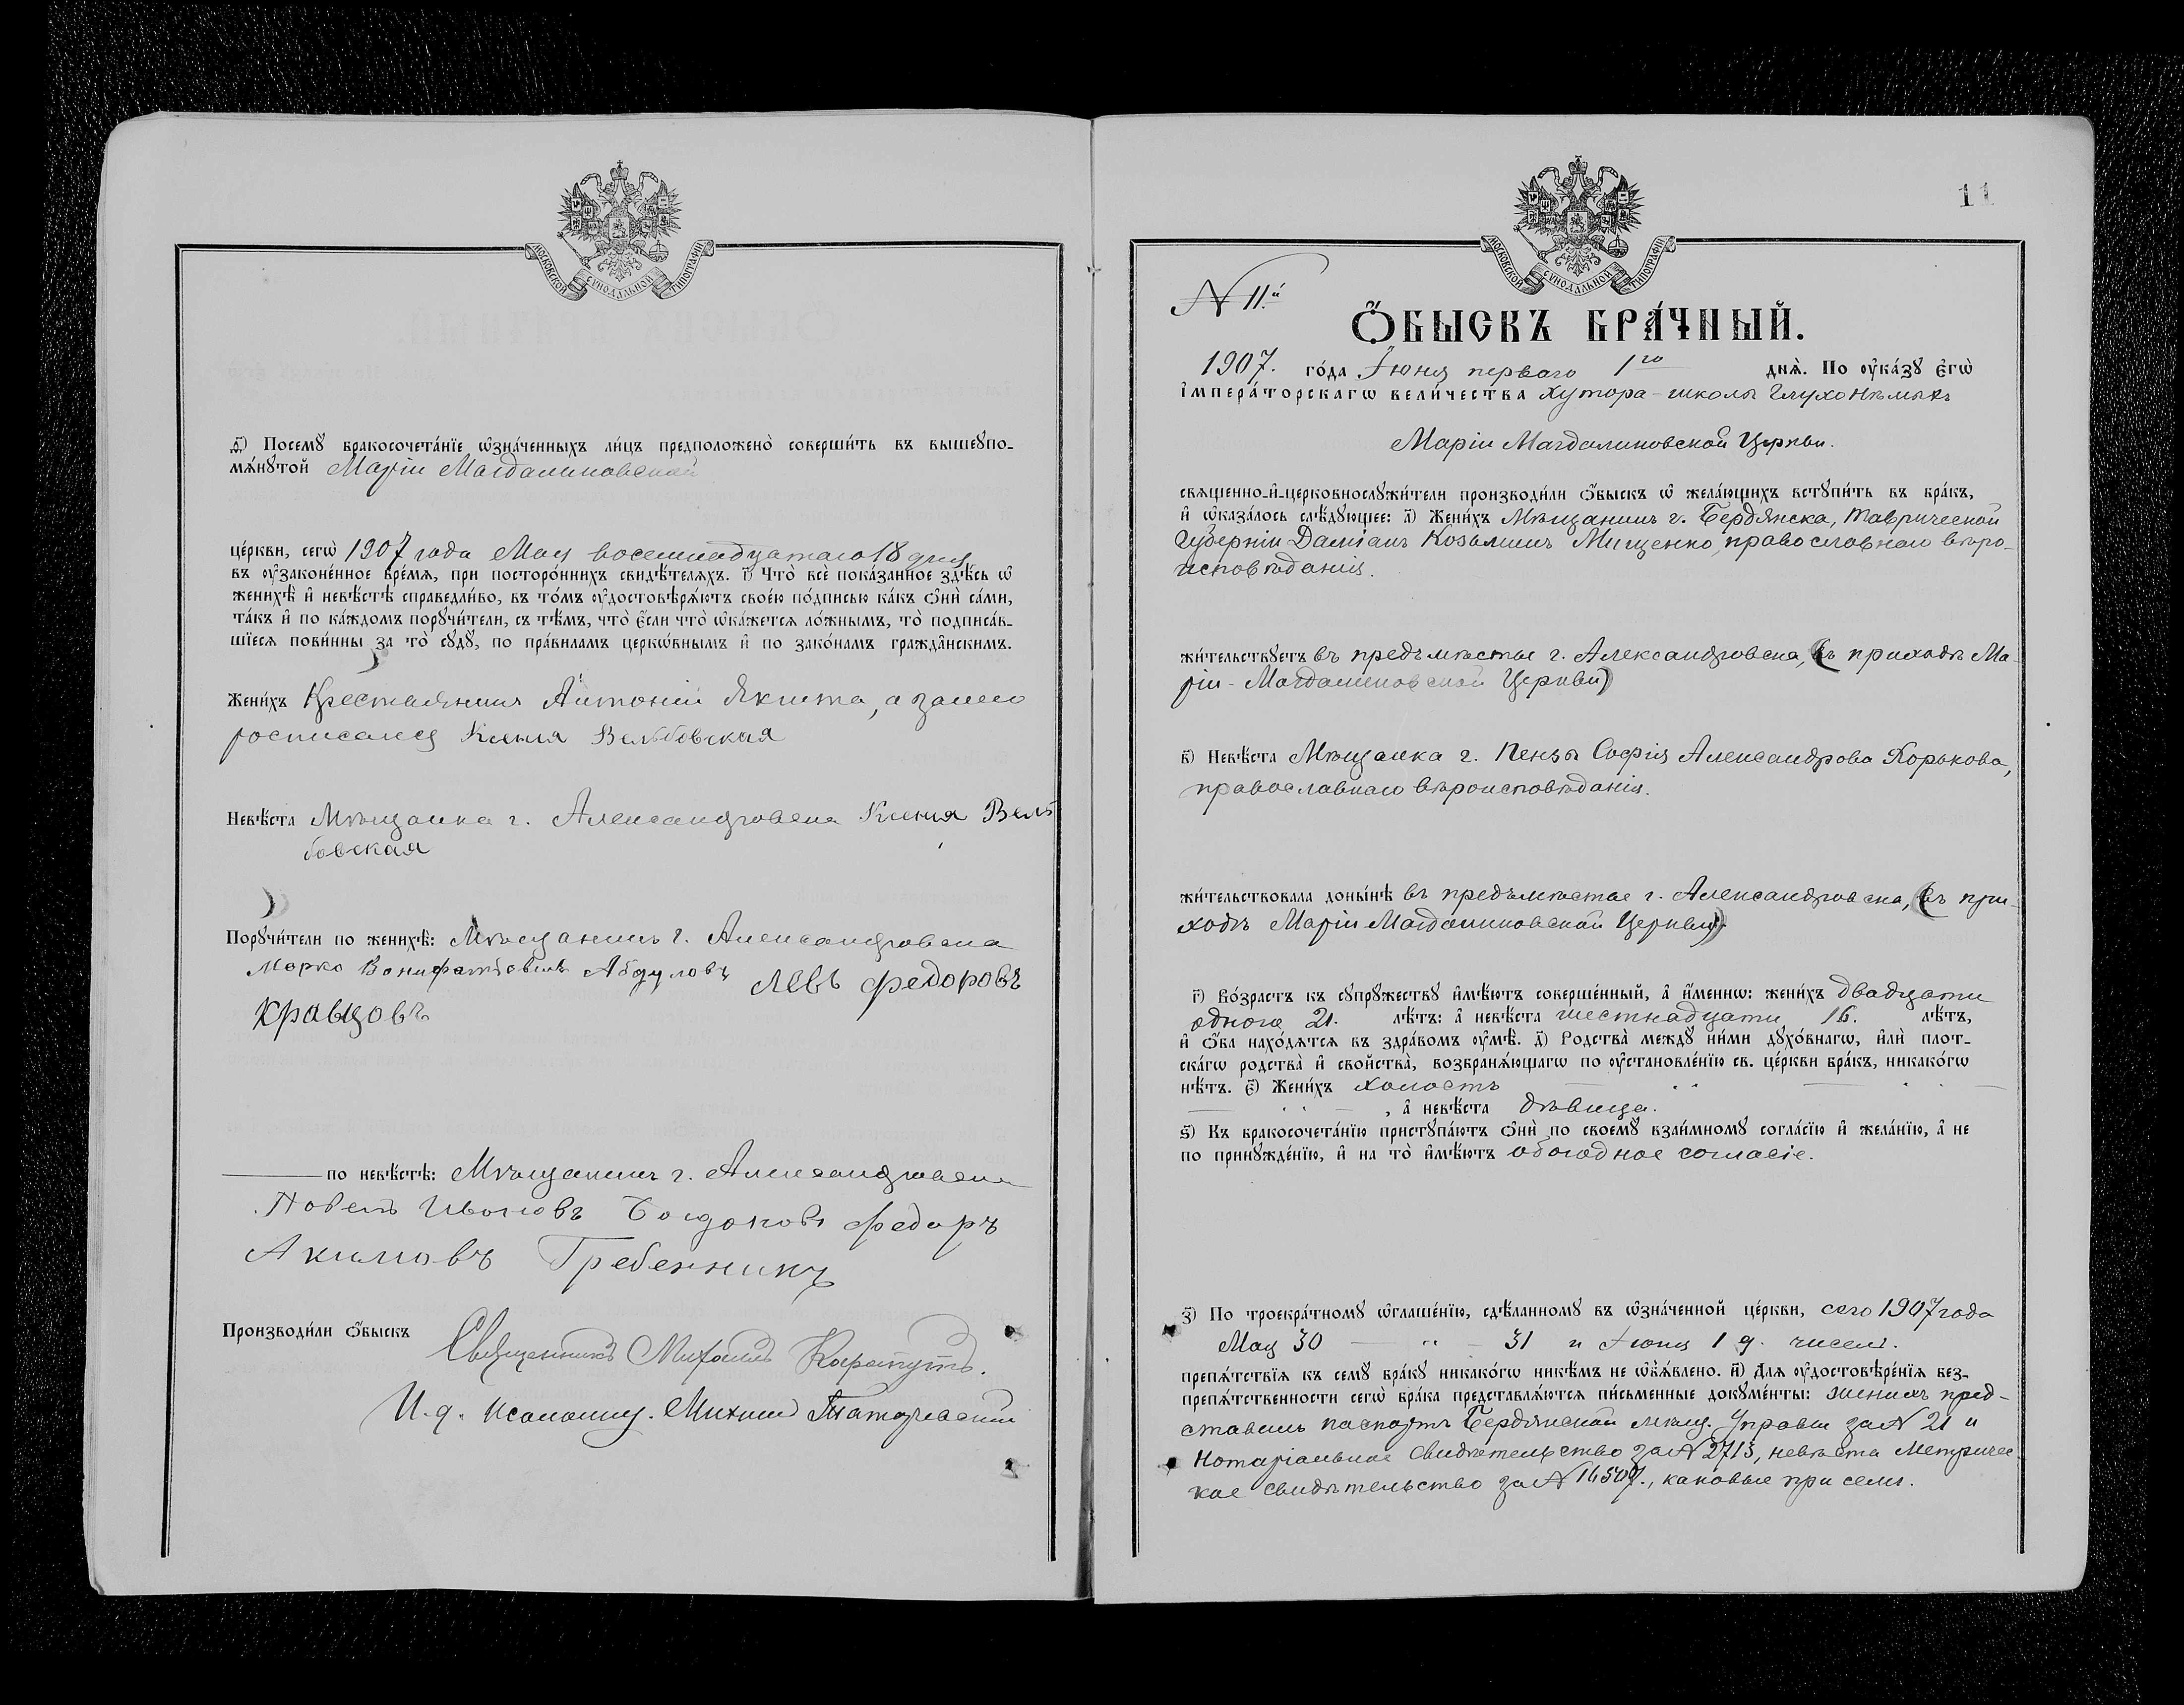 МОСКОВСКОЙ СѴНОДАЛЬНОЙ ТИПОГРАФІИ
д҃) Посемꙋ бракосочета́нїе ѡ҆зна́ченныхъ ли́цъ предположено̀ соверши́ть въ вышеꙋпо-
мѧ́нꙋтой Маріи Магдалиновской
це́ркви, сегѡ̀ 1907 года Мая восемнадцатаго 18 дня
въ ᲂу҆законе́нное вре́мѧ, при посторо́ннихъ свидѣ́телѧхъ. і҃) Что̀ всѐ пока́занное здѣ́сь ѡ҆
женихѣ̀ и҆ невѣ́стѣ справедли́во, въ то́мъ ᲂу҆достовѣрѧ́ютъ свое́ю по́дписью ка́къ ѻ҆нѝ са́ми,
та́къ и҆ по ка́ждомъ порꙋчи́тели, съ тѣ́мъ, что̀ є҆́сли что̀ ѡ҆ка́жетсѧ ло́жнымъ, то̀ подписа́в-
шїесѧ пови́нны за то̀ сꙋдꙋ̀, по пра́виламъ церкѡ́внымъ и҆ по зако́намъ гражда̑нскимъ.
Жени́хъ Крестьянинъ Антоній Якита, а за него
росписалась Ксенія Вельбовская
Невѣ́ста Мѣщанка г. Александровска Ксенія Вель
бовская
Порꙋчи́тели по женихѣ̀: Мѣщанинъ г. Александровска
Марко Вонифатьевичъ Абдуловъ Левъ Федоровъ
Кравцовъ
по невѣ́стѣ: Мѣщанинъ г. Александровска
Павелъ Ивановъ Богдановъ Федоръ
Акимовъ Гребенникъ
Производи́ли ѻ҆́быскъ Священникъ Михаилъ
И. д. псаломщ. Михаилъ
11
МОСКОВСКОЙ СѴНОДАЛЬНОЙ ТИПОГРАФІИ
N 11й
Ѻ҆́БЫСКЪ БРА́ЧНЫЙ.
1907. го́да Іюня перваго 1го днѧ̀. По ᲂу҆ка́зꙋ є҆гѡ̀
і҆мпера́торскагѡ вели́чества хутора-школы глухонѣмыхъ
Маріи Магдалиновской Церкви.
свѧщенно-и҆-церковнослꙋжи́тели производи́ли ѻ҆́быскъ ѡ҆ жела́ющихъ встꙋпи́ть въ бра́къ,
и҆ ѡ҆каза́лось слѣ́дꙋющее: а҃) Жени́хъ Мѣщанинъ г. Бердянска, Таврической
Губерніи Даміанъ Козьминъ Мищенко, православнаго вѣро-
исповѣданія.
жи́тельствꙋетъ въ предъмѣстье г. Александровска, (въ приходѣ Ма-
ріи-Магдалиновской Церкви)
в҃) Невѣ́ста Мѣщанка г. Пензы Софія Александрова Хорькова,
православнаго вѣроисповѣданія.
жи́тельствовала доны́нѣ въ предъмѣстье г. Александровска, (въ при-
ходѣ Маріи Магдалиновской Церкви).
г҃) Во́зрастъ къ сꙋпрꙋжествꙋ и҆мѣ́ютъ соверше́нный, а҆ и҆́меннѡ: жени́хъ двадцати
одного 21. лѣ́тъ: а҆ невѣ́ста шестнадцати 16. лѣ́тъ,
и҆ ѻ҆́ба нахо́дѧтсѧ въ здра́вомъ ᲂу҆мѣ̀. д҃) Родства̀ междꙋ ни́ми дꙋхо́внагѡ, и҆лѝ плот-
ска́гѡ родства̀ и҆ свойства̀, возбранѧ́ющагѡ по ᲂу҆становле́нїю св. це́ркви бра́къ, никако́гѡ
нѣ́тъ. є҃) Жени́хъ холостъ
, а҆ невѣ́ста дѣвица.
ѕ҃) Къ бракосочета́нїю пристꙋпа́ютъ ѻ҆нѝ по своемꙋ̀ взаи́мномꙋ согла́сїю и҆ жела́нїю, а҆ не
по принꙋжде́нїю, и҆ на то̀ и҆мѣ́ютъ обоюдное согласіе.
з҃) По троекра́тномꙋ ѡ҆глаше́нїю, сдѣ́ланномꙋ въ ѡ҆зна́ченной це́ркви, сего 1907 года
Мая 30 — " — 31 и Іюня 1 д. чиселъ.
препѧ́тствїѧ къ семꙋ̀ бра́кꙋ никако́гѡ никѣ́мъ не ѡ҆б̾ѧ́влено. и҃) Длѧ ᲂу҆достовѣре́нїѧ без-
препѧ́тственности сегѡ̀ бра́ка представлѧ́ютсѧ пи́сьменные докꙋме́нты: женихъ пред-
ставилъ паспортъ Бердянской мѣщ. Управы за N 21 и
Нотаріальное свидѣтельство за N 2713, невѣста Метричес
кое свидѣтельство за N каковые при семъ.